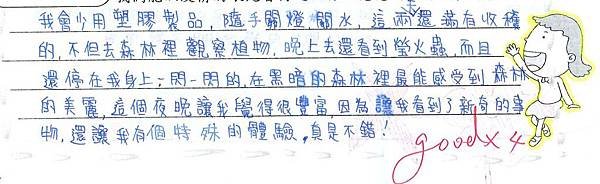 我會少用塑膠製品,隨手關燈關水,這兩還滿有收穫
的,不但去森林裡觀察植物,晚上去還看到螢火蟲,而且
還停在我身上,一閃一閃的,在黑暗的森林裡最能感受到森林
的美麗,這個夜晚讓我覺得很豐富,因為讓我看到了新奇的事
物,還讓我有個特殊的體驗,真是不錯!
goodx4